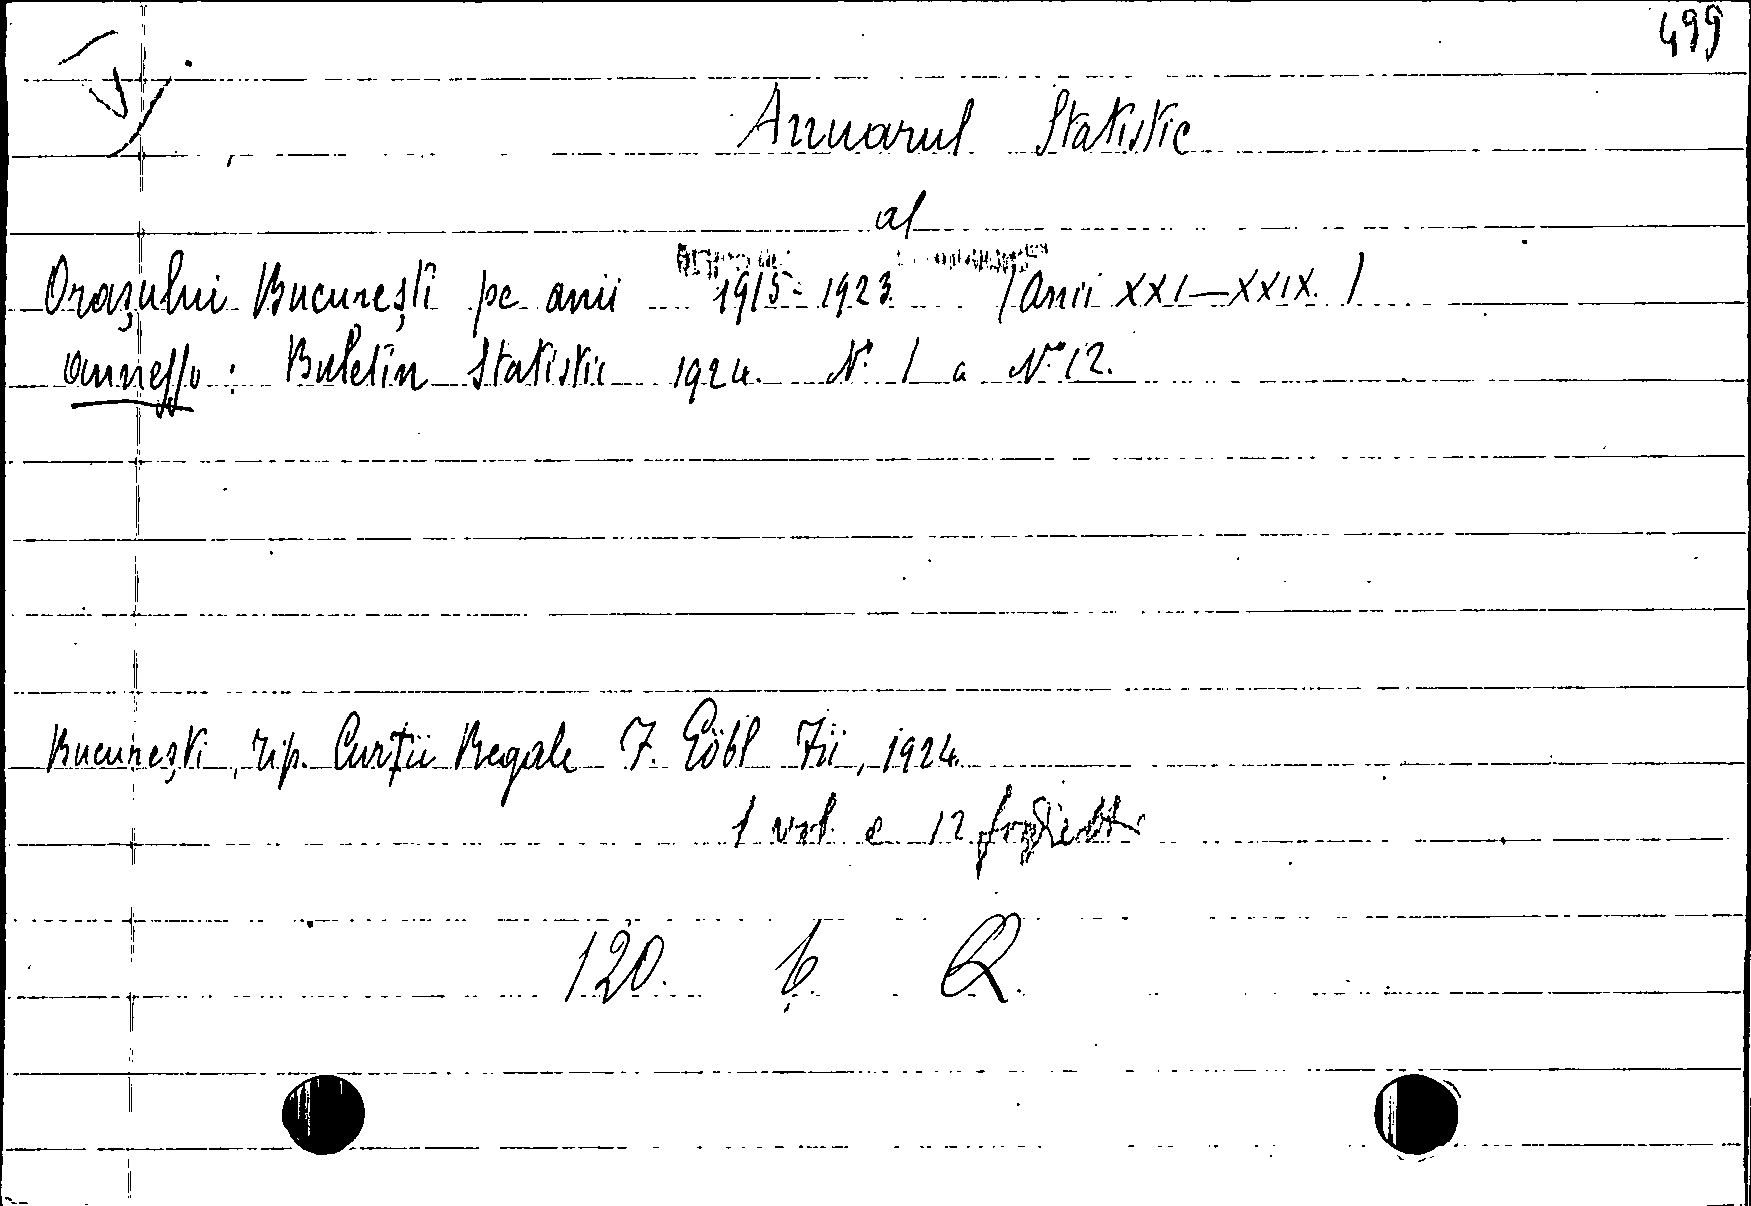 499
Anuarul Statistic
al
Orașului București pe anii 1915-1923 (Anii XXI—XXIX.)
annesso : Buletin Statistic 1924. N.° 1 a N.° 12.
București, Tip. Curții Regale F. Göbl Fii, 1924.
1 vol. e 12 fogli
120. 6. Q.